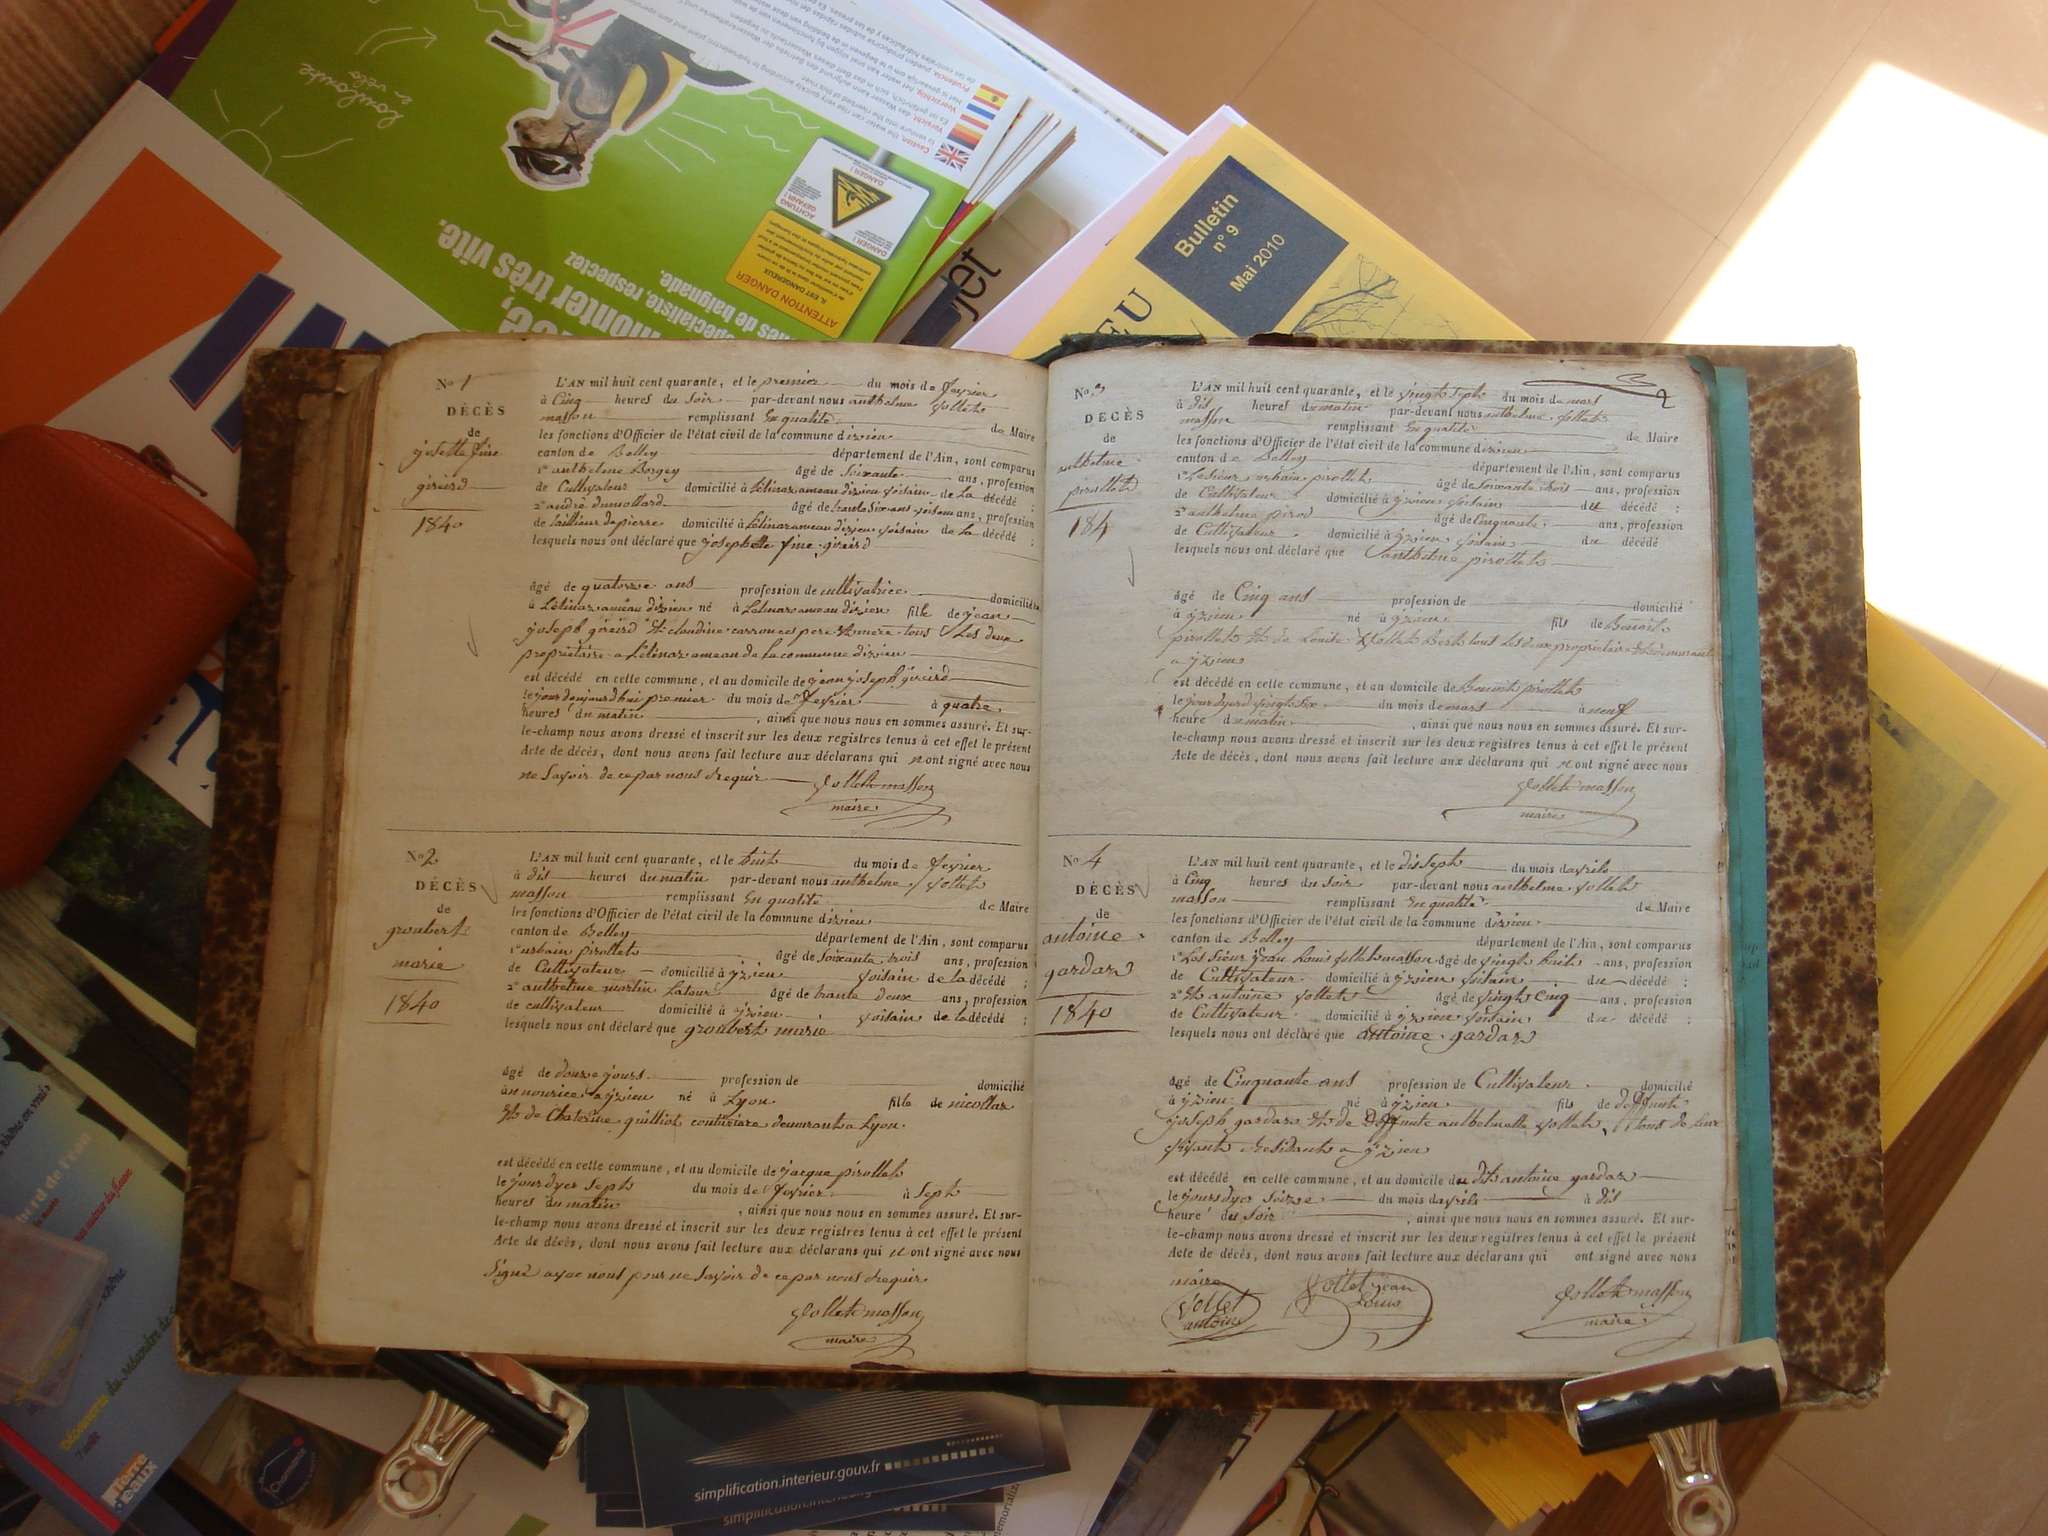 Bulletin
n° 9
Mai 2010
ATTENTION DANGER
DANGER !
monter très vite.
No 1
DÉCÈS
de
josette fine
girerd
1840
L'AN mil huit cent quarante, et le premier du mois de fevrier
à Cinq heures du soir par-devant nous anthelme vollet
masson remplissant En qualité de Maire
les fonctions d'Officier de l'état civil de la commune dizieu
canton de Belley département de l'Ain, sont comparus
1° anthelme Borgey âgé de soixante ans, profession
de Cultivateur domicilié à Lélinaz ameau dizieu voisain de La décédé ;
2° andré dumollard âgé de trante six ans voisain ans, profession
de tailleur depierre domicilié à Lélinaz ameau dizieu voisain de La décédé ;
lesquels nous ont déclaré que josephette fine girerd
âgé de quatorze ans profession de cultivatrice domicilié
à Lélinaz ameau dizieu né à Lelinaz ameau dizieu fille de jean
joseph girerd Et claudine carron ces pere Et mere tous Les deux
propriétaire a Lélinaz ameau de la commune dizieu
est décédé en cette commune, et au domicile de jean joseph girerd
le jour daujourdhui premier du mois de fevrier à quatre
heures du matin, ainsi que nous nous en sommes assuré. Et sur-
le-champ nous avons dressé et inscrit sur les deux registres tenus à cet effet le présent
Acte de décès, dont nous avons fait lecture aux déclarans qui n ont signé avec nous
ne savoir de ce par nous Requir
Vollet masson
maire
No 2
DÉCÈS
de
groubert
marie
1840
L'AN mil huit cent quarante, et le huit du mois de fevrier
à dis heures du matin par-devant nous anthelme vollet
masson remplissant En qualité de Maire
les fonctions d'Officier de l'état civil de la commune dizieu
canton de Belley département de l'Ain, sont comparus
1° urbain pirollet âgé de soixante trois ans, profession
de Cultivateur domicilié à yzieu voisain de la décédé ;
2° anthelme martin Latour âgé de trante deux ans, profession
de cultivateur domicilié à yzieu voisain de la décédé ;
lesquels nous ont déclaré que groubert marie
âgé de douze jours profession de domicilié
à nourice a yzieu né à Lyon fille de nicollas
Et de Chaterine guilliot couturiere demeurant a Lyon.
est décédé en cette commune, et au domicile de jacque pirollet
le jour dyer sept du mois de fevrier à sept
heures du matin, ainsi que nous nous en sommes assuré. Et sur-
le-champ nous avons dressé et inscrit sur les deux registres tenus à cet effet le présent
Acte de décès, dont nous avons fait lecture aux déclarans qui n ont signé avec nous
signé avec nous pour ne savoir de ce par nous Requir
Vollet masson
maire
2
No 3
DÉCÈS
de
anthelme
pirollet
184
L'AN mil huit cent quarante, et le vingt sept du mois de mars
à dis heures du matin par-devant nous anthelme vollet
masson remplissant En qualité de Maire
les fonctions d'Officier de l'état civil de la commune dizieu
canton de Belley département de l'Ain, sont comparus
1° Le sieur urbain pirollet âgé de soixante trois ans, profession
de Cultivateur domicilié à yzieu voisain du décédé ;
2° anthelme pirod âgé de cinquante ans, profession
de Cultivateur domicilié à yzieu voisain du décédé
lesquels nous ont déclaré que anthelme pirollet
âgé de Cinq ans profession de domicilié
à yzieu né à yzieu fils de Benoit
pirollet Et de Louise vollet Bert tous les deux propriétaire Et demeurant
a yzieu
est décédé en cette commune, et au domicile de Benoit pirollet
le jour dyerd vingt six du mois de mars à neuf
heure du matin, ainsi que nous nous en sommes assuré. Et sur-
le-champ nous avons dressé et inscrit sur les deux registres tenus à cet effet le présent
Acte de décès, dont nous avons fait lecture aux déclarans qui n ont signé avec nous
Vollet masson
maire
No 4
DÉCÈS
de
antoine
gardaz
1840
L'AN mil huit cent quarante, et le dis sept du mois davrile
à Cinq heures du soir par-devant nous anthelme vollet
masson remplissant En qualité de Maire
les fonctions d'Officier de l'état civil de la commune dizieu
canton de Belley département de l'Ain, sont comparus
1° Les sieur jean Louis vollet masson âgé de vingt huit ans, profession
de Cultivateur domicilié à yzieu voisain du décédé ;
2° Et antoine vollet âgé de vingt Cinq ans, profession
de Cultivateur domicilié à yzieu voisain du décédé ;
lesquels nous ont déclaré que antoine gardaz
âgé de Cinquante ans profession de Cultivateur domicilié
à yzieu né à yzieu fils de deffunt
joseph gardaz Et de Deffunte anthelmette vollet, tous de leur
vivant Residant a yzieu
est décédé en cette commune, et au domicile du dit antoine gardaz
le jours dyer seize du mois davrile à dis
heure du soir, ainsi que nous nous en sommes assuré. Et sur-
le-champ nous avons dressé et inscrit sur les deux registres tenus à cet effet le présent
Acte de décès, dont nous avons fait lecture aux déclarans qui ont signé avec nous
maire
Vollet antoine
Vollet jean Louis
Vollet masson
maire
simplification.interieur.gouv.fr
Terre
d'eaux